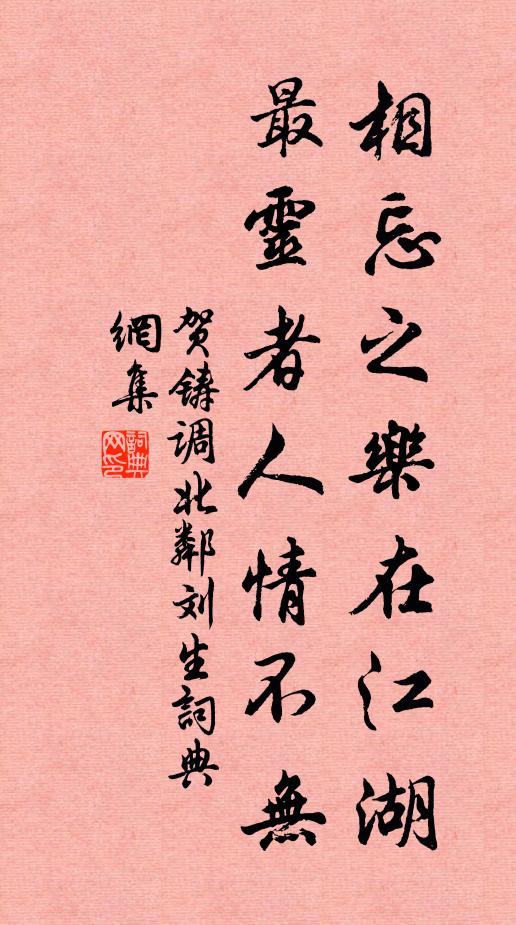 相忘之樂在江湖
最靈者人情不無
贺鑄调北鄰刘生詞典
網集
詞典網印